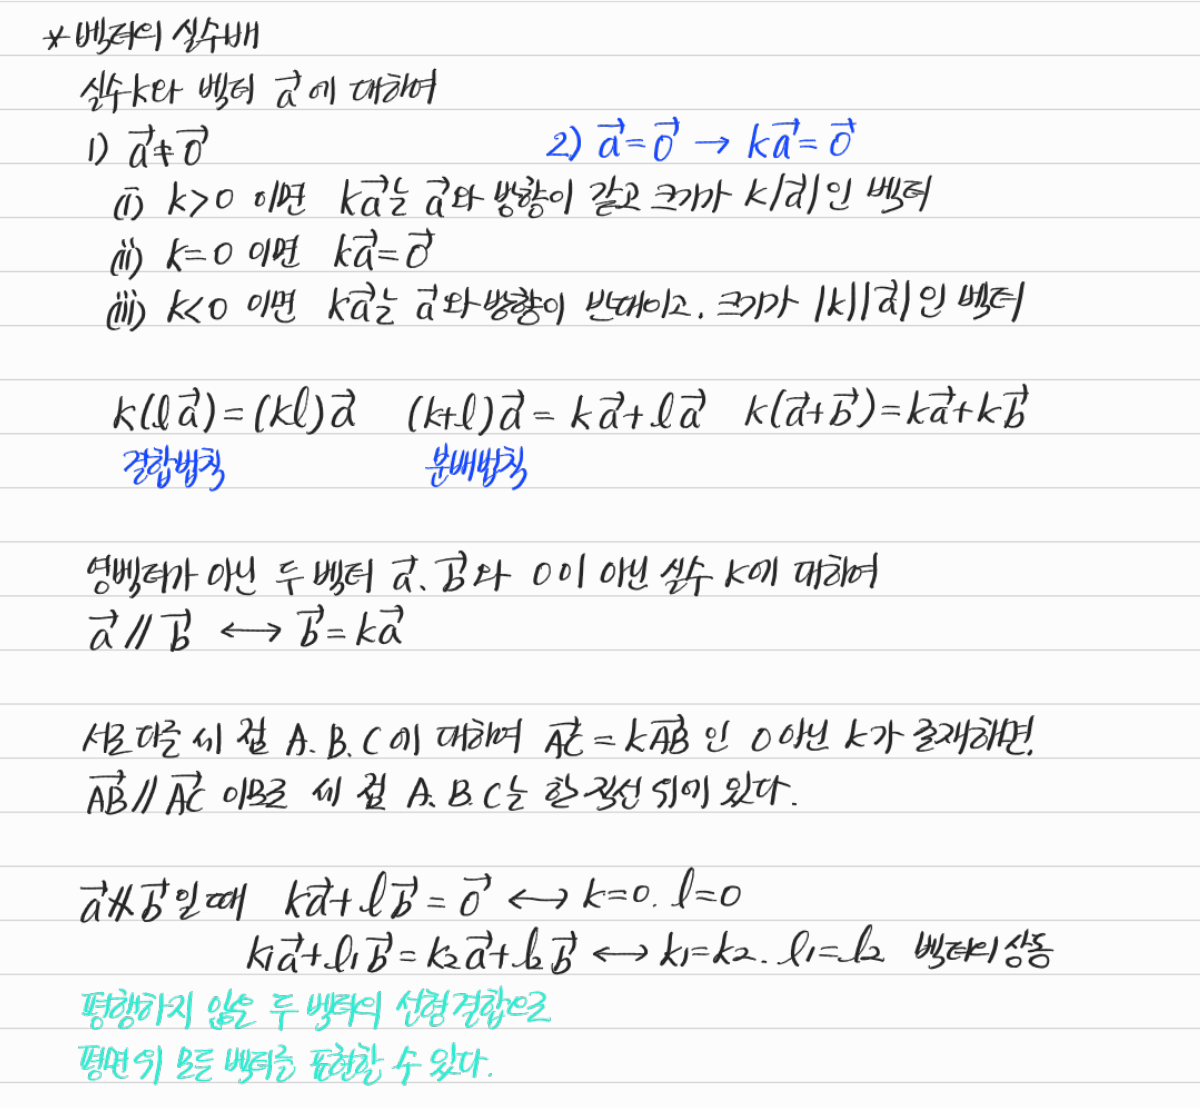 *벡터의 실수배
실수 k와 벡터 a⃗에 대하여
1) a⃗≠0⃗ 2) a⃗=0⃗ → ka⃗=0⃗
(i) k>0 이면 ka⃗는 a⃗와 방향이 같고 크기가 k|a⃗|인 벡터
(ii) k=0 이면 ka⃗=0⃗
(iii) k<0 이면 ka⃗는 a⃗와 방향이 반대이고, 크기가 |k||a⃗|인 벡터
k(la⃗)=(kl)a⃗ (k+l)a⃗=ka⃗+la⃗ k(a⃗+b⃗)=ka⃗+kb⃗
결합법칙 분배법칙
영벡터가 아닌 두 벡터 a⃗, b⃗와 0이 아닌 실수 k에 대하여
a⃗ // b⃗ ↔ b⃗=ka⃗
서로 다른 세 점 A, B, C에 대하여 AC⃗=kAB⃗인 0 아닌 k가 존재하면,
AB⃗ // AC⃗ 이므로 세 점 A, B, C는 한 직선 위에 있다.
a⃗∦b⃗일 때 ka⃗+lb⃗=0⃗ ↔ k=0, l=0
k₁a⃗+l₁b⃗=k₂a⃗+l₂b⃗ ↔ k₁=k₂, l₁=l₂ 벡터의 상등
평행하지 않은 두 벡터의 선형결합으로
평면위 모든 벡터를 표현할 수 있다.